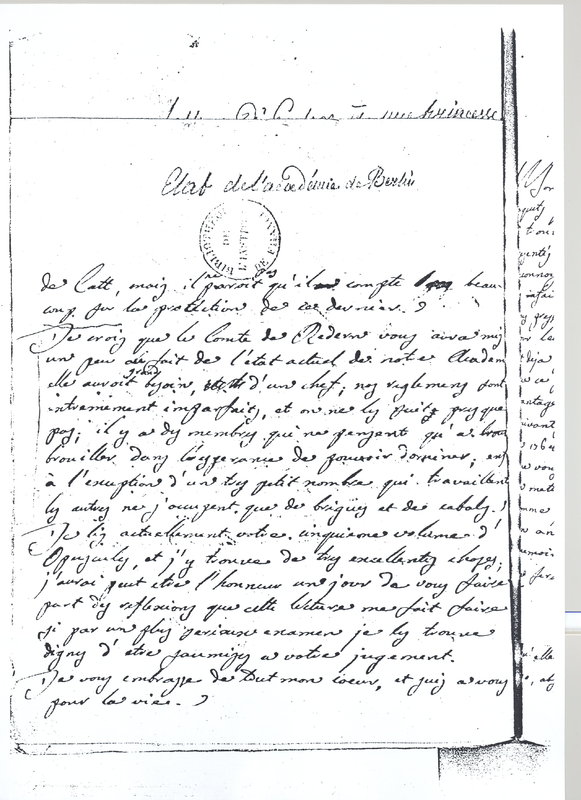 princesse
Etat de l'académie de Berlin
BIBLIOTHEQUE DE L'INSTITUT DE FRANCE
de Catt, mais il ne paroit pas qu'il compte beau-
coup sur la protection de ce dernier.
Je crois que le Comte de Redern vous aura mis
un peu au fait de l'état actuel de notre Academ
elle auroit grand besoin, d'un chef; nos reglemens sont
entierement imparfaits, et on ne les suit presque
pas; il y a des membres qui ne pensent qu'a
brouiller dans l'esperance de pouvoir dominer; enf
à l'exception d'un tres petit nombre qui travaillent
les autres ne s'occupent que de brigues et de cabales.
Je lis actuellement votre cinquieme volume d'
Opuscules, et j'y trouve de tres excellentes choses,
j'aurai peut etre l'honneur un jour de vous faire
part des reflexions que cette lecture me fait faire
si par un plus serieux examen je les trouve
dignes d'etre soumises a votre jugement.
Je vous embrasse de tout mon coeur, et suis a vous
pour la vie.